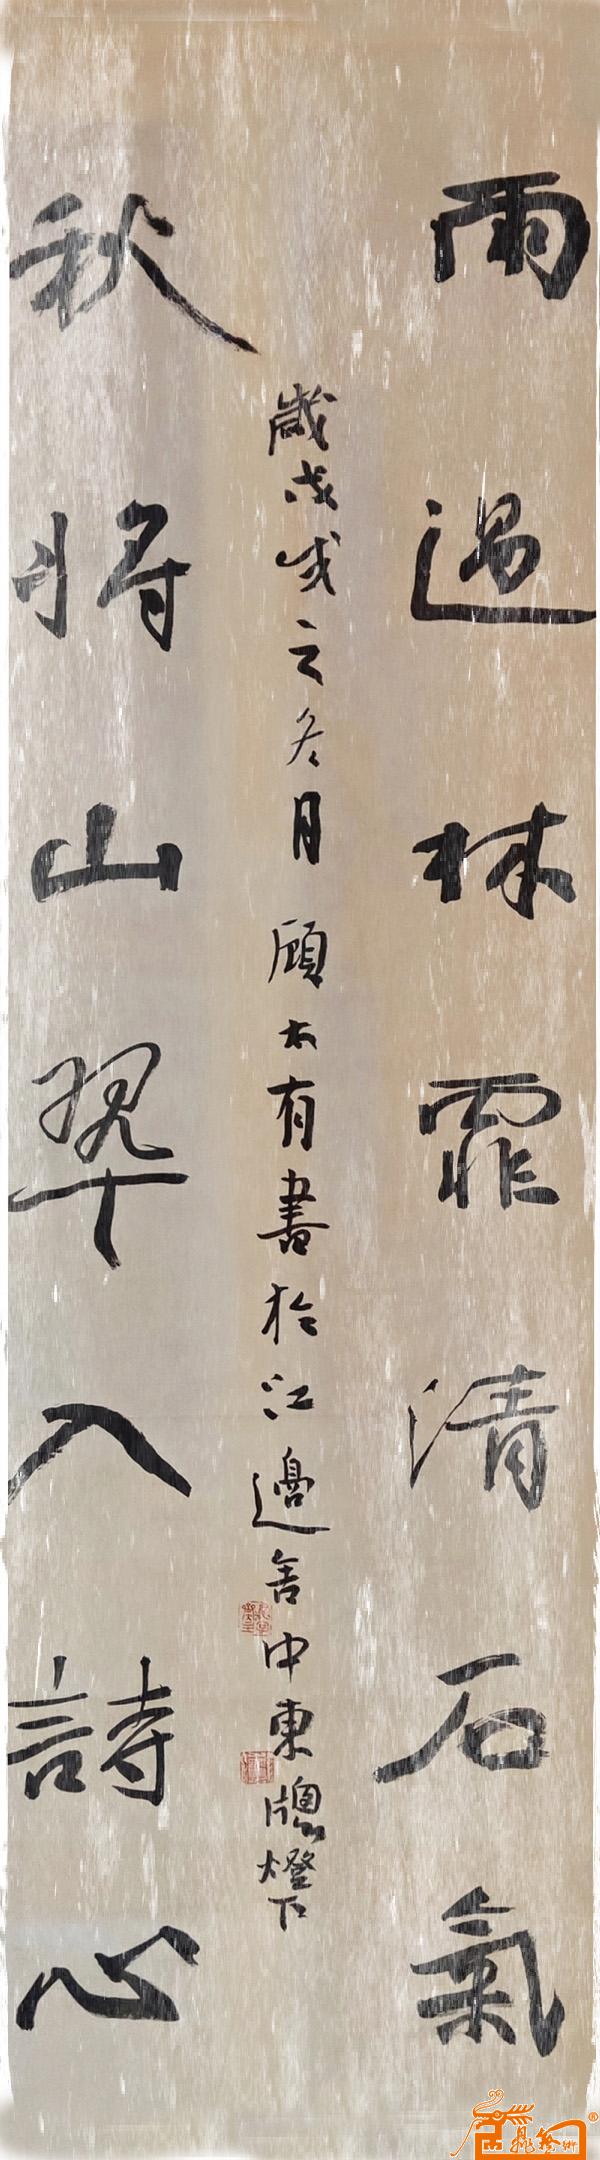 雨過林霏清石氣
歲戊戌之冬月顧大有書於江邊舍中東牕燈下
秋將山翠入詩心